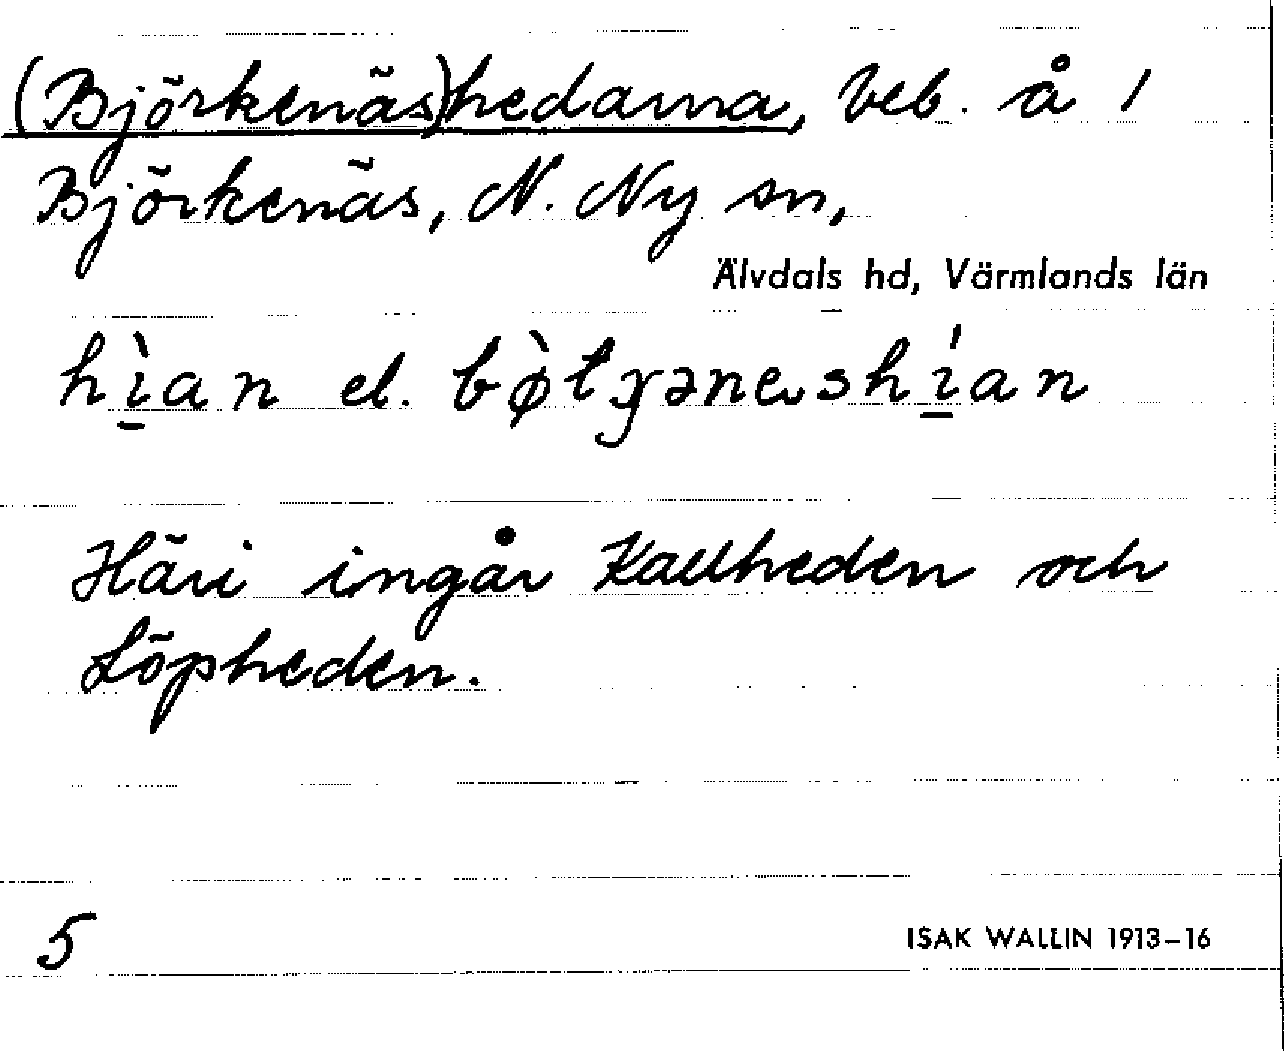 (Björkenäs)hedarna, beb. å 1
Björkenäs, N. Ny sn,
Älvdals hd, Värmlands län
hìan el. bø̀tʒəneshían
Häri ingår Kallheden och
Löpheden.
5
ISAK WALLIN 1913–16